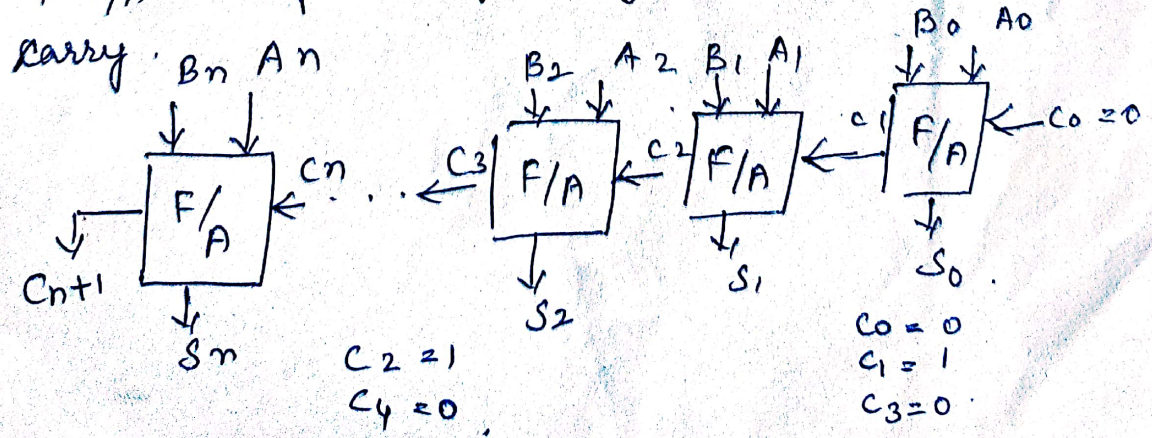 carry.
Bn An B2 A2 B1 A1 B0 A0
F/A Cn ... C3 F/A C2 F/A C1 F/A C0 = 0
Cn+1 Sn S2 S1 S0.
C2 = 1
C4 = 0
C0 = 0
C1 = 1
C3 = 0.